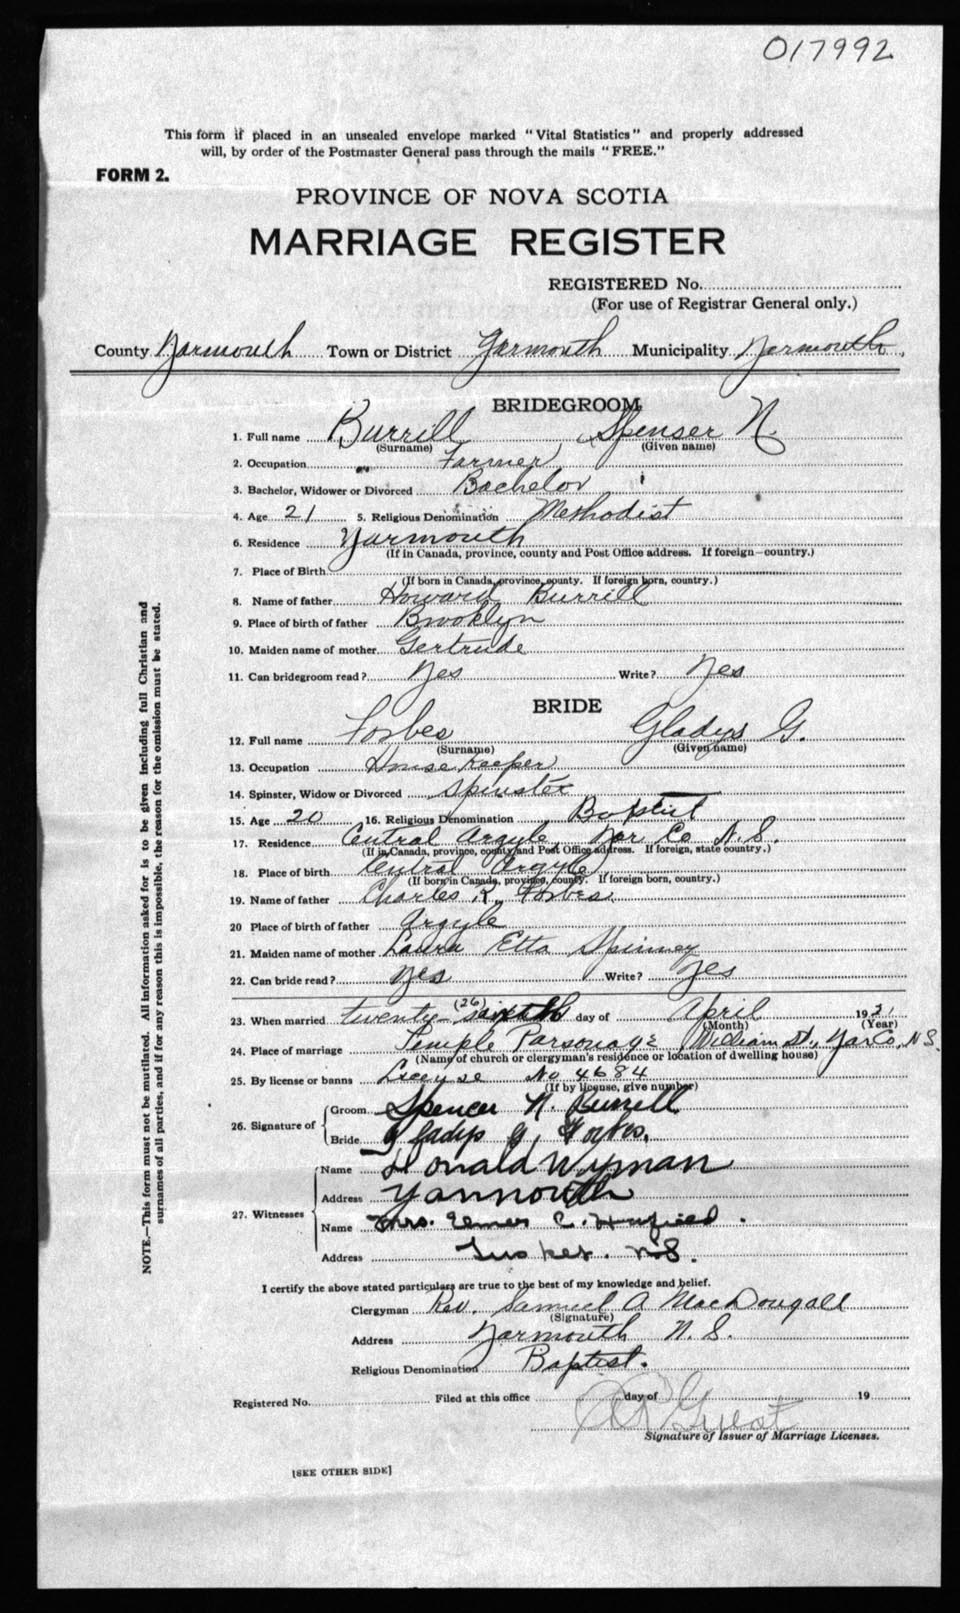 017992
This form if placed in an unsealed envelope marked "Vital Statistics" and properly addressed
will, by order of the Postmaster General pass through the mails "FREE."
FORM 2.
PROVINCE OF NOVA SCOTIA
MARRIAGE REGISTER
REGISTERED No.
(For use of Registrar General only.)
County Yarmouth Town or District Yarmouth Municipality Yarmouth
BRIDEGROOM
1. Full name Burrill Spenser N.
(Surname) (Given name)
2. Occupation Farmer
3. Bachelor, Widower or Divorced Bachelor
4. Age 21 5. Religious Denomination Methodist
6. Residence Yarmouth
(If in Canada, province, county and Post Office address. If foreign—country.)
7. Place of Birth
(If born in Canada, province, county. If foreign born, country.)
8. Name of father Howard Burrill
9. Place of birth of father Brooklyn
10. Maiden name of mother Gertrude
11. Can bridegroom read? Yes Write? Yes
BRIDE
12. Full name Forbes Gladys G.
(Surname) (Given name)
13. Occupation House Keeper
14. Spinster, Widow or Divorced Spinster
15. Age 20 16. Religious Denomination Baptist
17. Residence Central Argyle, Yar Co N.S.
(If in Canada, province, county and Post Office address. If foreign, state country.)
18. Place of birth Central Argyle
(If born in Canada, province, county. If foreign born, country.)
19. Name of father Charles R. Forbes
20 Place of birth of father Argyle
21. Maiden name of mother Laura Etta Spinney
22. Can bride read? Yes Write? Yes
23. When married twenty-sixth (26) day of April 1921
(Month) (Year)
24. Place of marriage Temple Parsonage William St., Yar Co, N.S.
(Name of church or clergyman's residence or location of dwelling house)
25. By license or banns License No 4684
(If by license, give number)
26. Signature of
Groom Spencer N. Burrill
Bride Gladys G. Forbes.
27. Witnesses
Name Donald Wyman
Address Yarmouth
Name Mrs. Elmer C.
Address Tusket. N.S.
I certify the above stated particulars are true to the best of my knowledge and belief.
Clergyman Rev. Samuel A MacDougall
(Signature)
Address Yarmouth N.S.
Religious Denomination Baptist.
Registered No. Filed at this office day of 19
Guest
Signature of Issuer of Marriage Licenses.
[SEE OTHER SIDE]
NOTE.—This form must not be mutilated. All information asked for is to be given including full Christian and
surnames of all parties, and if for any reason this is impossible, the reason for the omission must be stated.